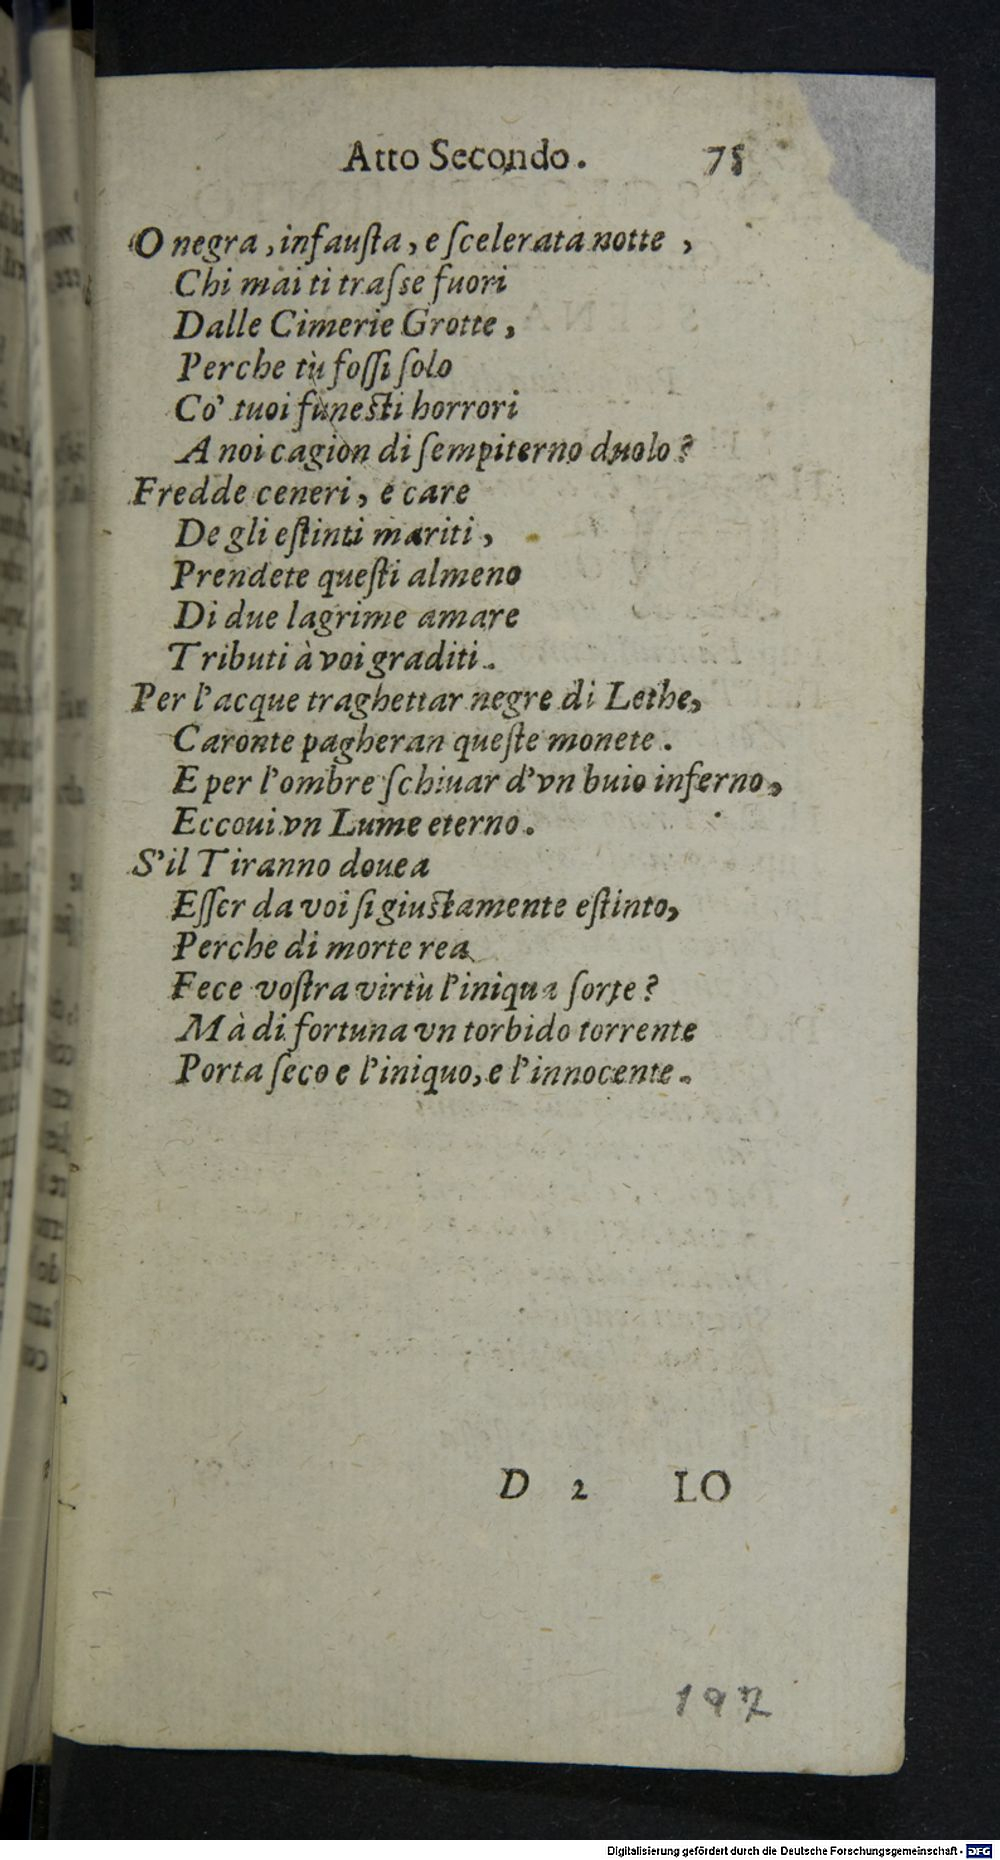 Atto Secondo. 75
O negra, infauſta, e ſcelerata notte,
Chi mai ti traſse fuori
Dalle Cimerie Grotte,
Perche tù foſſi ſolo
Co' tuoi funeſti horrori
A noi cagion di ſempiterno duolo?
Fredde ceneri, e care
De gli eſtinti mariti,
Prendete queſti almeno
Di due lagrime amare
Tributi à voi graditi.
Per l'acque traghettar negre di Lethe,
Caronte pagheran queſte monete.
E per l'ombre ſchiuar d'vn buio inferno,
Eccoui vn Lume eterno.
S'il Tiranno douea
Eſſer da voi ſi giuſtamente eſtinto,
Perche di morte rea
Fece voſtra virtù l'iniqua ſorte?
Mà di fortuna vn torbido torrente
Porta ſeco e l'iniquo, e l'innocente.
D 2 LO
197
Digitalisierung gefördert durch die Deutsche Forschungsgemeinschaft - DFG